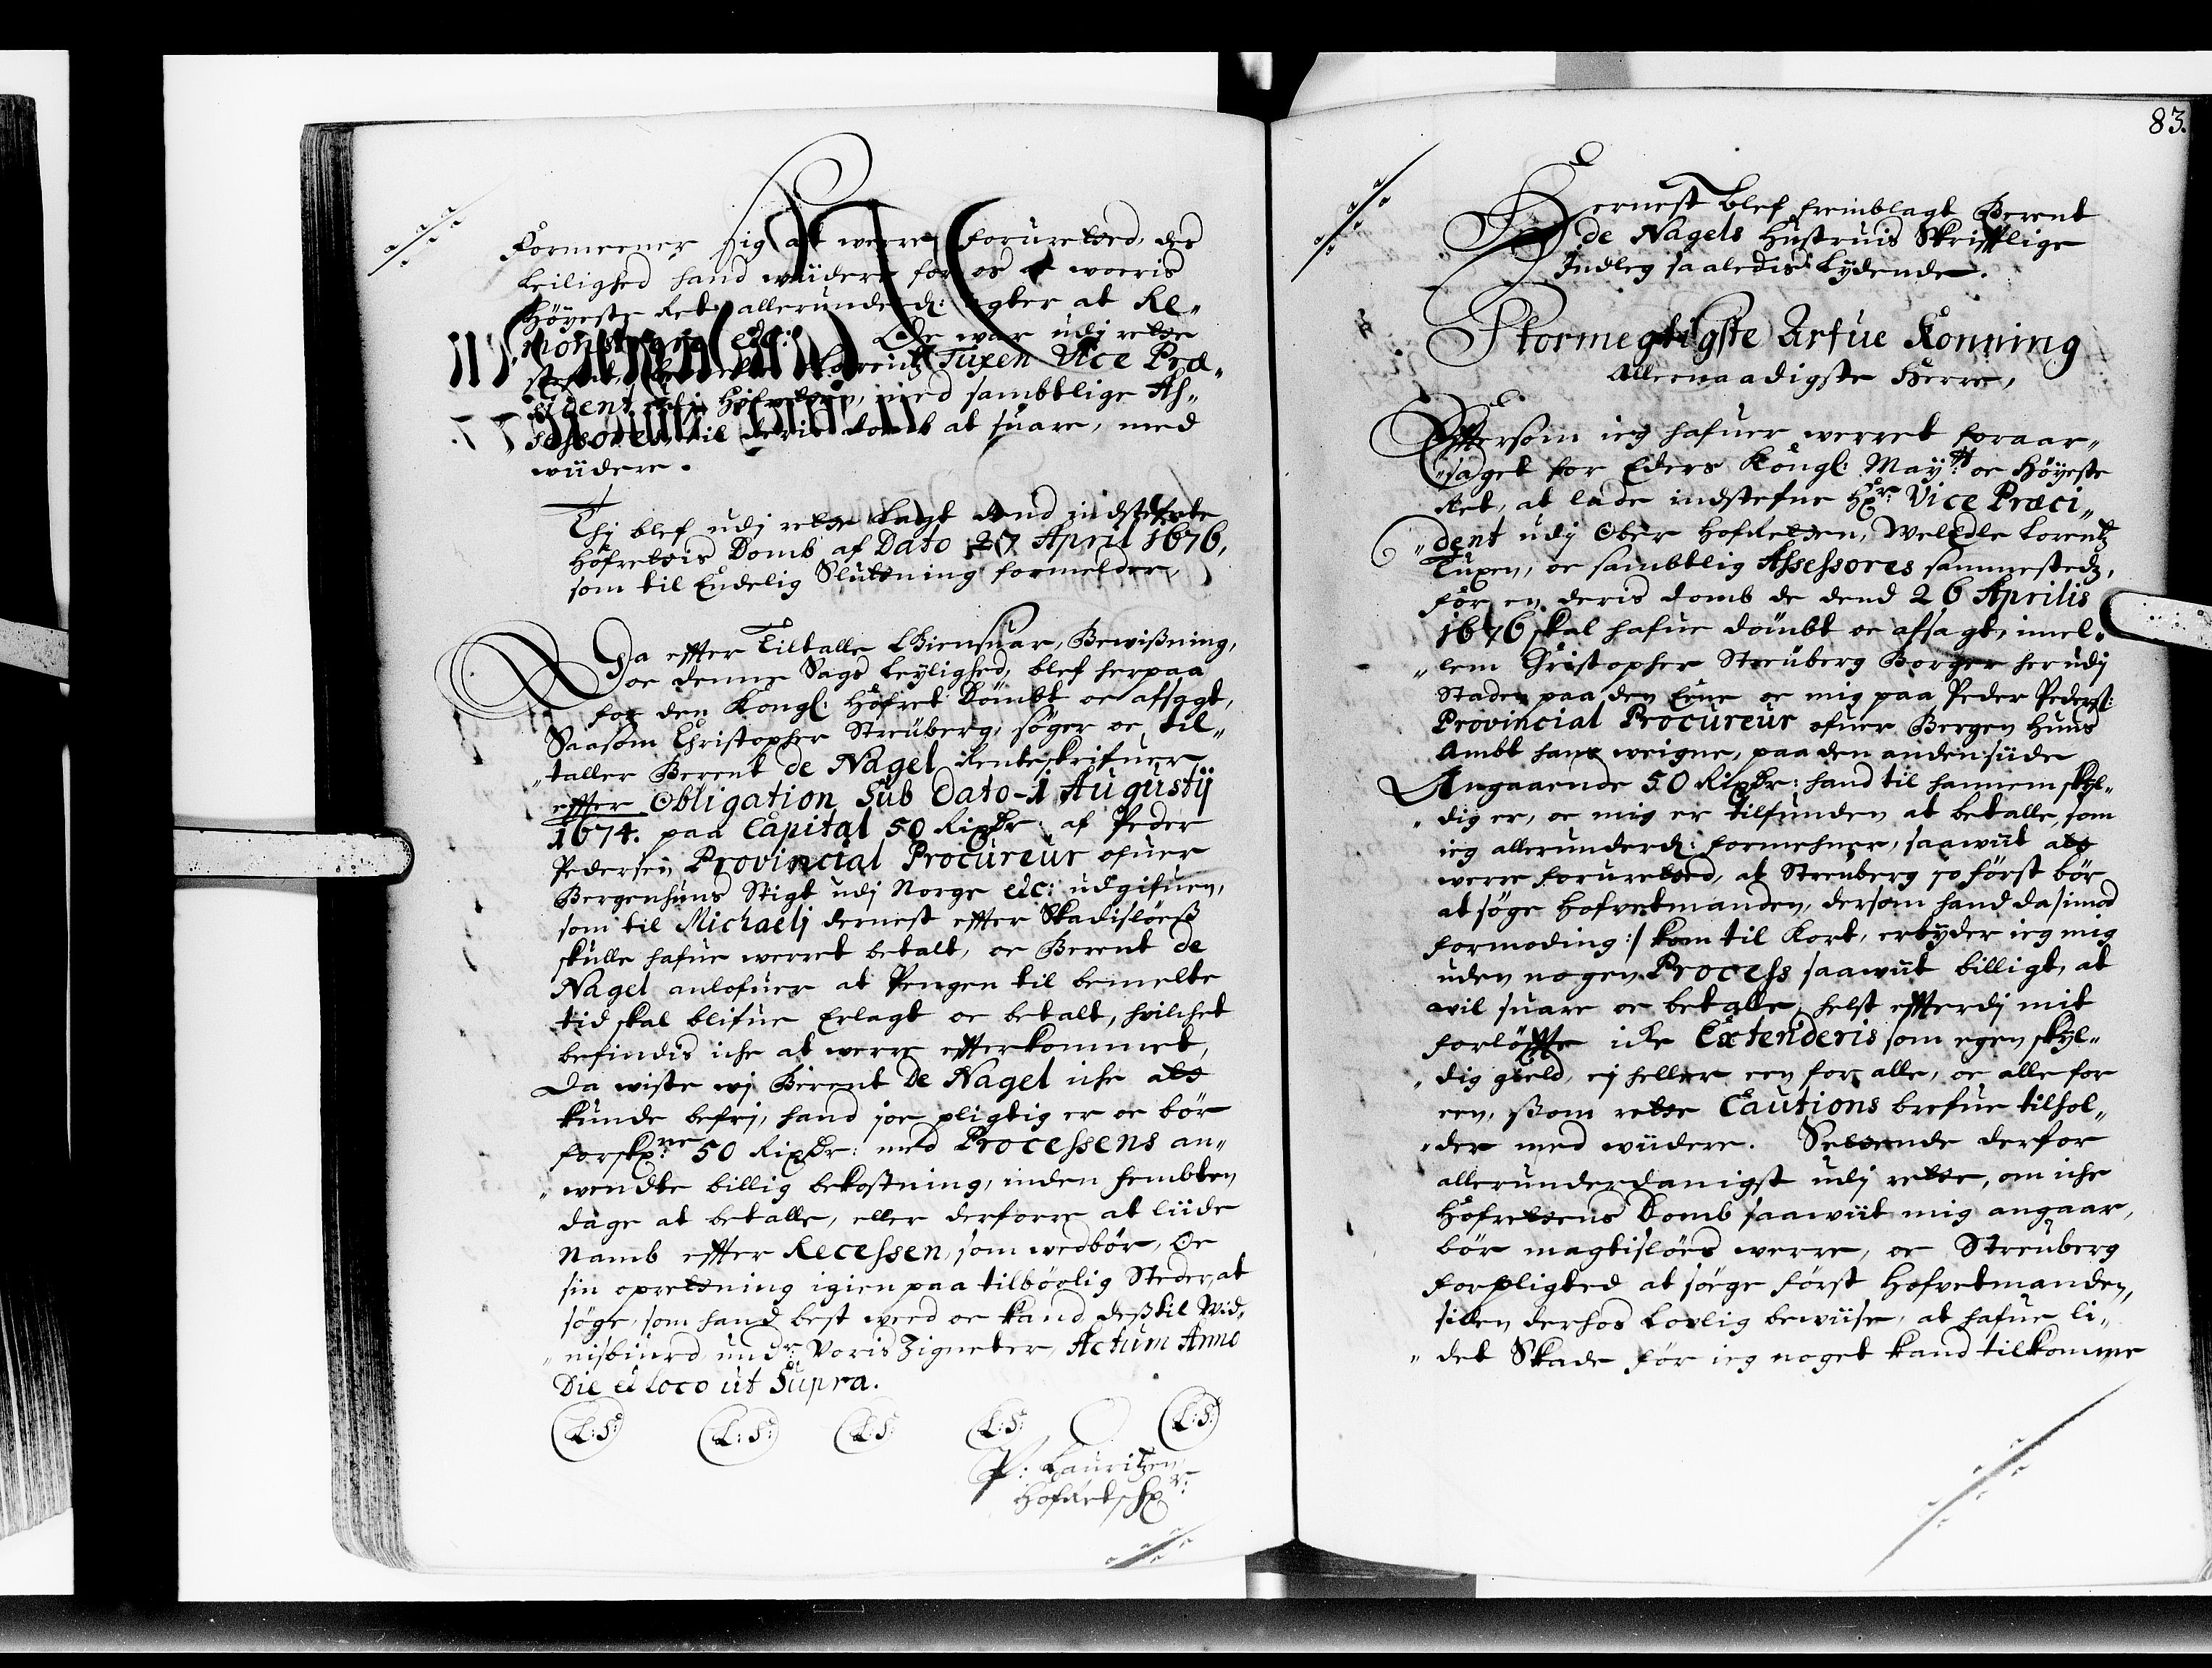 Formeener sig at werre foruretted, des
Leilighed hand widere for os og woris
Höyeste Ret allerunderd: agter at Re„
monstrere etc: Da war udj rette
Lorentz Tuxen Vice Præ„
sident udj Hofretten, med sambtlige As„
sessores, til deris domb at suare, med
widere.
Thj blef udj rette lagt dend indstefnte
Hofrettis Domb af Dato 27 April 1676,
som til Endelig Slutning formelder,
Da effter Tiltalle Giensuar, Bewißning,
oc denne Sags Leylighed, blef herpaa
for den Kongl: Hofret Dömbt oc afsagt,
Saasom Christopher Streuberg, söger oc til„
„taller Berent de Nagel Renteskrifuer
effter Obligation Sub Dato 1 Augustij
1674. paa Capital 50 Rixdr: af Peder
Pedersen Provincial Procureur ofuer
Bergenhuus Stigt udj Norge etc: udgifuen,
som til Michaelj dernest effter Skadislöeß
skulle hafue werret betalt, oc Berent de
Nagel anlofuer at Pengen til bemelte
tid skal blifue Erlagt oc betalt, huilchet
befindis iche at werre efterkommet,
Da wiste wj Berent De Nagel iche at
kunde befrj, hand jo pligtig er oc bör
forskr:ne 50 Rixdr: med Processens an„
„wendte billig bekostning, inden fembten
dage at betalle, eller derforre at liide
Namb effter Recessen, som wedbör, Oc
sin oprettning igien paa tilbörlig Steder, at
söge, som hand best weed oc kand deßtil Wid„
„nisbiurd und:r Voris Zigneter, Actum Anno
Die et loco ut Supra.
L:S: L:S: L:S: L:S: L:S:
P: Lauritzen
HofRetskr:
83.
Dernest blef fremblagt Berent
de Nagels Hustruis Skrifftlige
Indleg saaledis Lydende.
Stormegtigste Arfue Konning
Allernaadigste Herre,
Effersom ieg hafuer werret foraar„
„saget for Eders Kongl: May:tt oc Höyeste
Ret, at lade indstefne Hr: Vice Præci„
„dent udj Ober HofRetten, WelEdle Lorentz
Tuxen, oc sambtlig Assessores sammestedz,
for en deris domb de dend 26 Aprilis
1676 skal hafue dömbt oc afsagt, imel„
„lem Christopher Streuberg Borger her udj
Staden paa den Eene oc mig paa Peder Peders:
Provincial Procureur ofuer Bergen Huus
Ambt hans weigne, paa den anden siide
Angaaende 50 Rixdr: hand til hannem skyl„
„dig er, oc mig er tilfunden at betalle, som
ieg allerunderd: formehner, saawiit at
werre foruretted, at Streuberg jo först bör
at söge Hofvetmanden, dersom hand da /:imod
formoding:/ kom til Kort, erbyder ieg mig
uden nogen Process saawiit billigt, at
wil suare oc betalle, helst effterdj mit
forlöffte icke Extenderis som egen skyl„
„dig gield, ej heller een for alle, oc alle for
een, ßom rette Cautions brefue tilhol„
„der med widere. Settende derfor
allerunderdanigst udj rette, om iche
Hofrettens Domb saawiit mig angaar,
bör magtislöes werre, oc Streuberg
forpligted at söege först Hofvetmanden,
siden derhos Lovlig bewiise, at hafue li„
„det Skade för ieg noget kand tilkomme